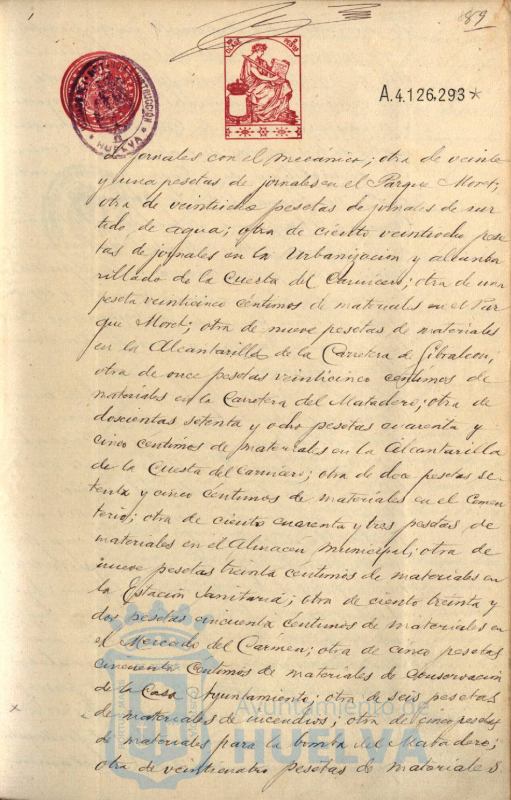 89
A.4.126.293*
HUELVA
de jornales con el mecánico; otra de veinte
y una pesetas de jornales en el Parque Moret;
otra de veintiocho pesetas de jornales de sur
tido de agua; otra de ciento veintiocho pese
tas de jornales en la Urbanización y alcanta
rillado de la Cuesta del Carnicero; otra de una
peseta veinticinco centimos de materiales en el Par
que Moret; otra de nueve pesetas de materiales
en la Alcantarilla de la Carretera de Gibraleon,
otra de once pesetas veinticinco centimos de
materiales en la Carretera del Matadero; otra de
doscientas setenta y ocho pesetas cuarenta y
cinco centimos de materiales en la Alcantarilla
de la Cuesta del Carnicero; otra de doce pesetas se
tenta y cinco centimos de materiales en el Cemen
terio; otra de ciento cuarenta y tres pesetas de
materiales en el Almacén municipal; otra de
nueve pesetas treinta centimos de materiales en
la Estación Sanitaria; otra de ciento treinta y
dos pesetas cincuenta centimos de materiales en
el Mercado del Carmen; otra de cinco pesetas
cincuenta centimos de materiales de conservación
de la Casa Ayuntamiento; otra de seis pesetas
de materiales de incendios; otra de cinco pesetas
de materiales para la bomba del Matadero;
otra de veinticuatro pesetas de materiales
Ayuntamiento de
HUELVA